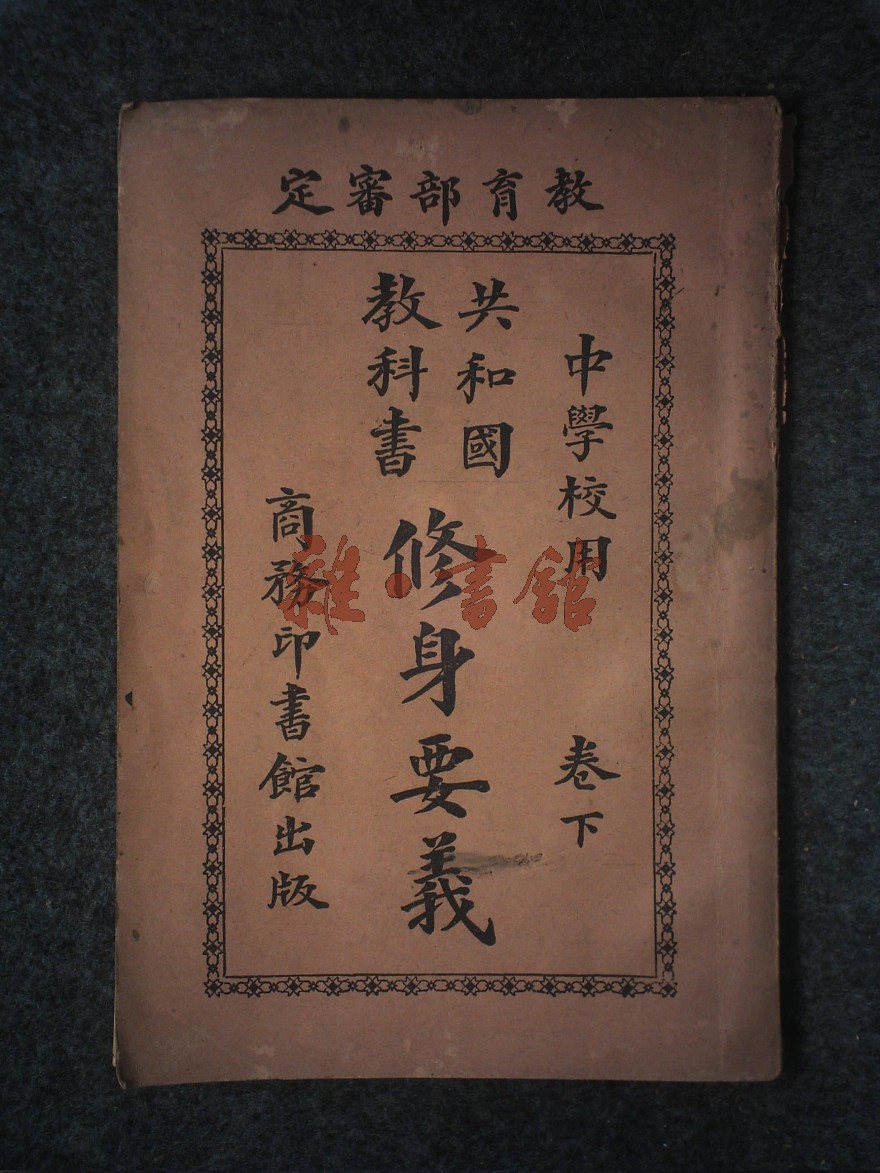 教育部審定
中學校用 卷下
共和國
教科書
修身要義
商務印書館出版
雜·書館